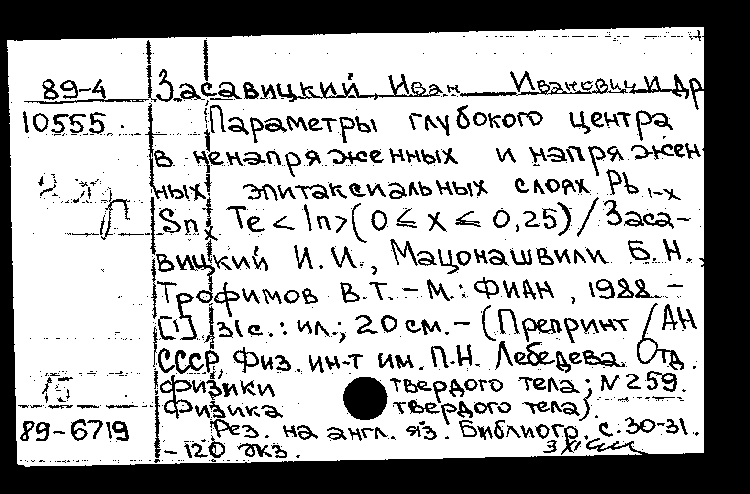 89-4 Засавицкий, Иван Иванович и др
10555. Параметры глубокого центра
в ненапряженных и напряжен
2 хр
ных эпитаксиальных слоях Pb1-x
Snx Te<In>(0≤x≤0,25)/Заса-
вицкий И.И., Мацонашвили Б.Н.,
Трофимов В.Т. – М.: ФИАН, 1988. –
[1], 31с.: ил.; 20см. – (Препринт / АН
СССР, Физ. ин-т им. П.Н. Лебедева. Отд.
15 физики твердого тела; N 259.
Физика твердого тела).
89-6719 Рез. на англ. яз. Библиогр. с. 30-31.
– 120 экз.